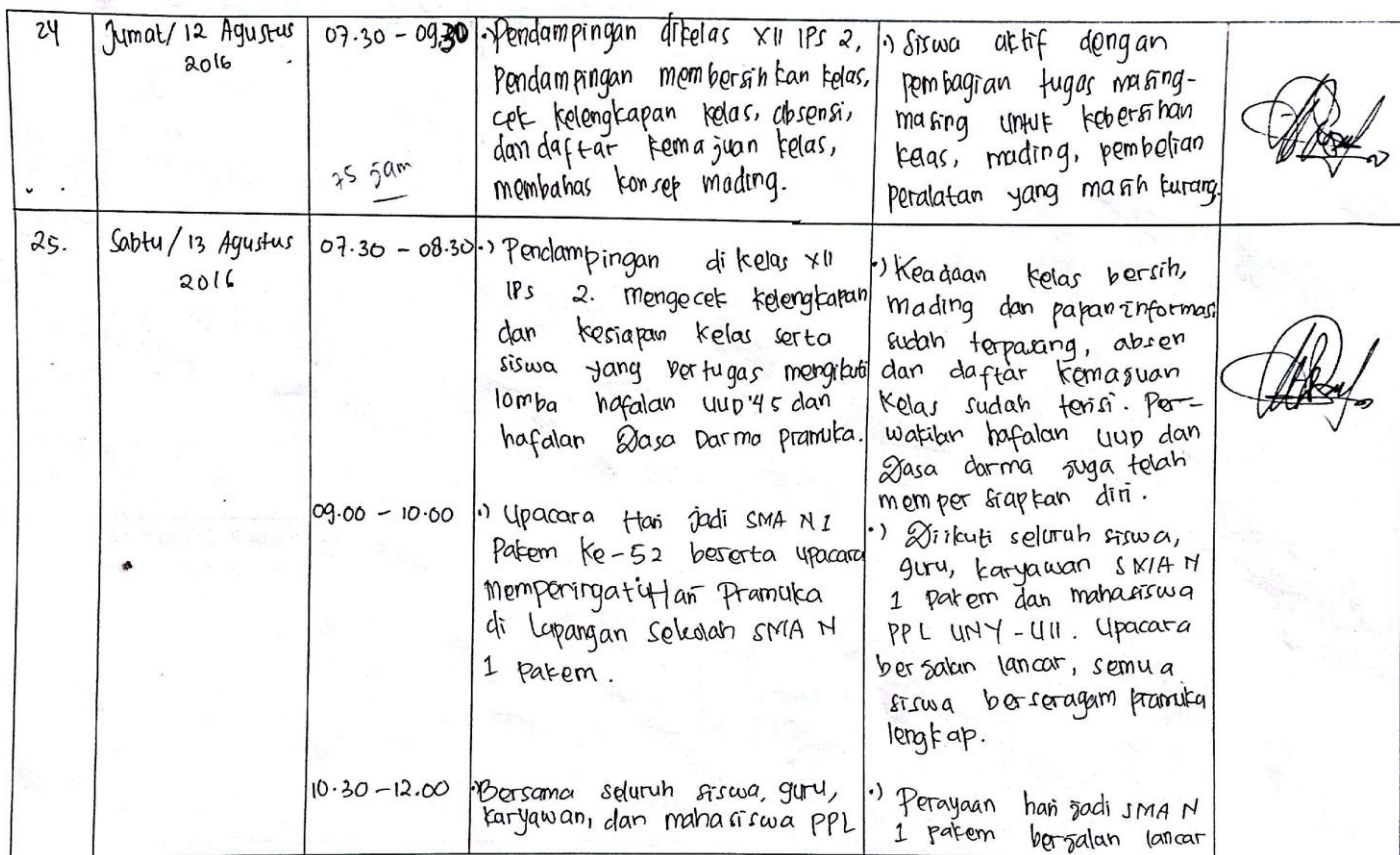 24
Jumat/ 12 Agustus
2016
07.30 - 09.30
75 jam
·) Pendampingan dikelas XII IPS 2,
Pendampingan membersihkan kelas,
cek kelengkapan kelas, absensi,
dan daftar kemajuan kelas,
membahas konsep mading.
·) Siswa aktif dengan
pembagian tugas masing-
masing untuk kebersihan
kelas, mading, pembelian
peralatan yang masih kurang.
25.
Sabtu/ 13 Agustus
2016
07.30 - 08.30
·) Pendampingan di kelas XII
IPS 2. Mengecek kelengkapan
dan kesiapan kelas serta
siswa yang bertugas mengikuti
lomba hafalan UUD'45 dan
hafalan Dasa Darma pramuka.
·) Keadaan kelas bersih,
mading dan papan informasi
sudah terpasang, absen
dan daftar kemajuan
kelas sudah terisi. Per-
wakilan hafalan UUD dan
Dasa darma juga telah
mempersiapkan diri.
09.00 - 10.00
·) Upacara Hari jadi SMA N 1
Pakem Ke-52 beserta upacara
memperingati Hari Pramuka
di lapangan Sekolah SMA N
1 Pakem.
·) Diikuti seluruh siswa,
guru, karyawan SMA N
1 Pakem dan mahasiswa
PPL UNY - UII. Upacara
berjalan lancar, semua
siswa berseragam pramuka
lengkap.
10.30 - 12.00
·) Bersama seluruh siswa, guru,
karyawan, dan mahasiswa PPL
·) Perayaan hari jadi SMA N
1 Pakem berjalan lancar